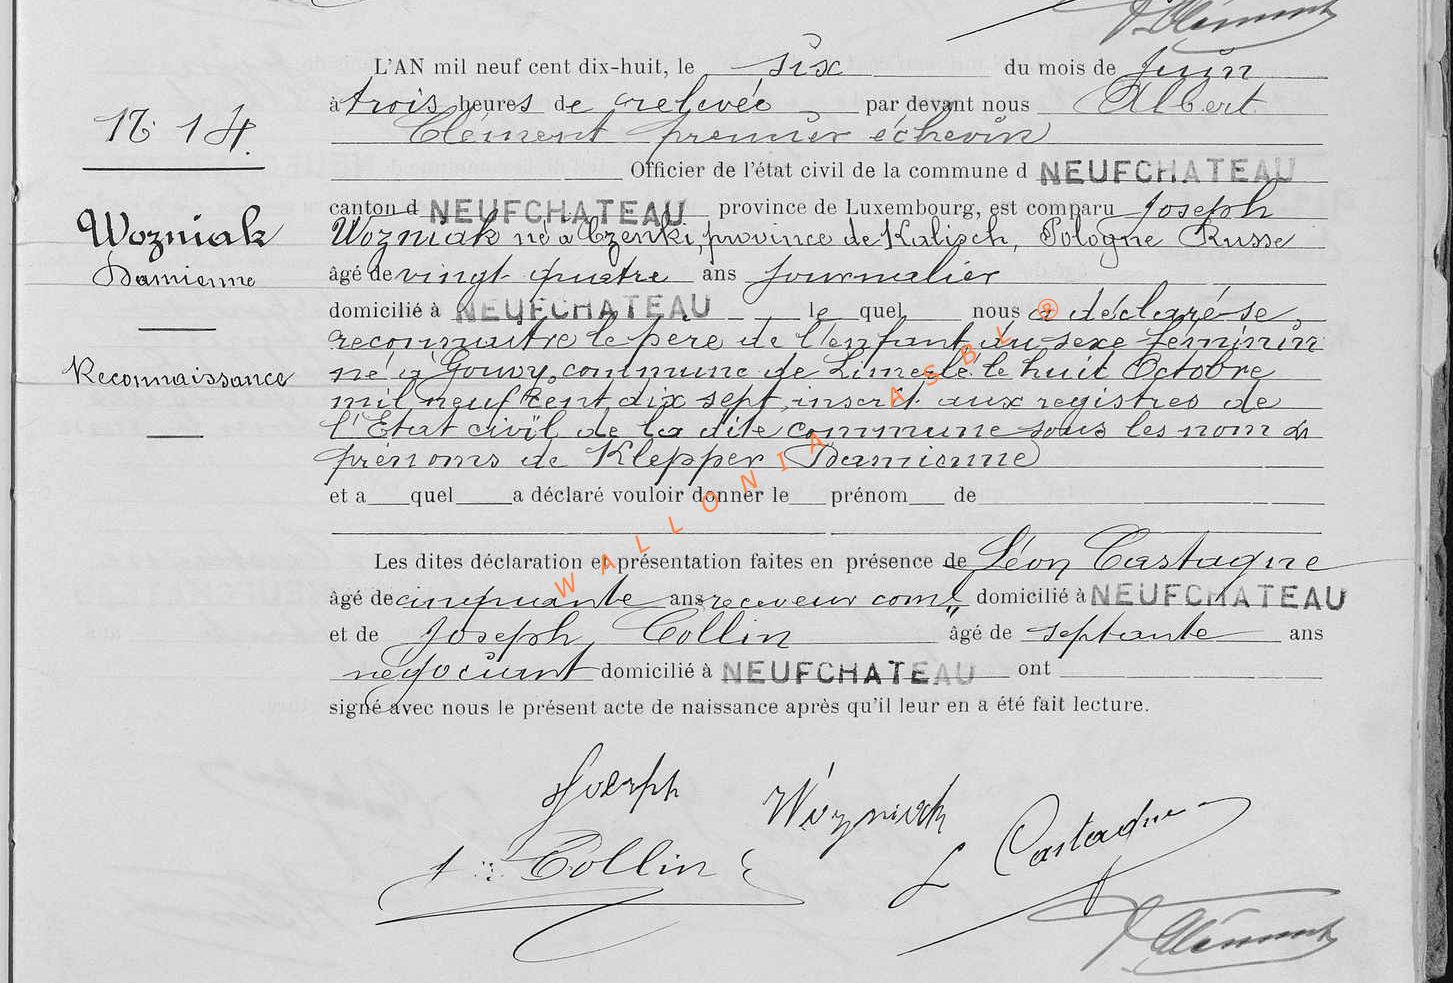 L'AN mil neuf cent dix-huit, le six du mois de Juin
à trois heures de relevée par devant nous Albert
Clément premier échevin
Officier de l'état civil de la commune d NEUFCHATEAU
canton d NEUFCHATEAU province de Luxembourg, est comparu Joseph
Wozniak né à Czenki, province de Kalisch, Pologne Russe
âgé de vingt quatre ans journalier
domicilié à NEUFCHATEAU le quel nous a déclaré se
reconnaitre le père de l'enfant du sexe feminin
né à Gouvy, commune de Limerlé le huit Octobre
mil neuf cent dix sept, inscrit aux registres de
l'Etat civil de la dite commune sous les nom &
prénoms de Klepper Damienne
et a quel a déclaré vouloir donner le prénom de
Les dites déclaration et présentation faites en présence de Léon Castagne
âgé de cinquante ans receveur com¹ domicilié à NEUFCHATEAU
et de Joseph Collin âgé de septante ans
négociant domicilié à NEUFCHATEAU ont
signé avec nous le présent acte de naissance après qu'il leur en a été fait lecture.
Nº 14.
Wozniak
Damienne
Reconnaissance
Joseph Wozniak
Collin L Castagne
Clément
Clément
WALLONIA ASBL ®